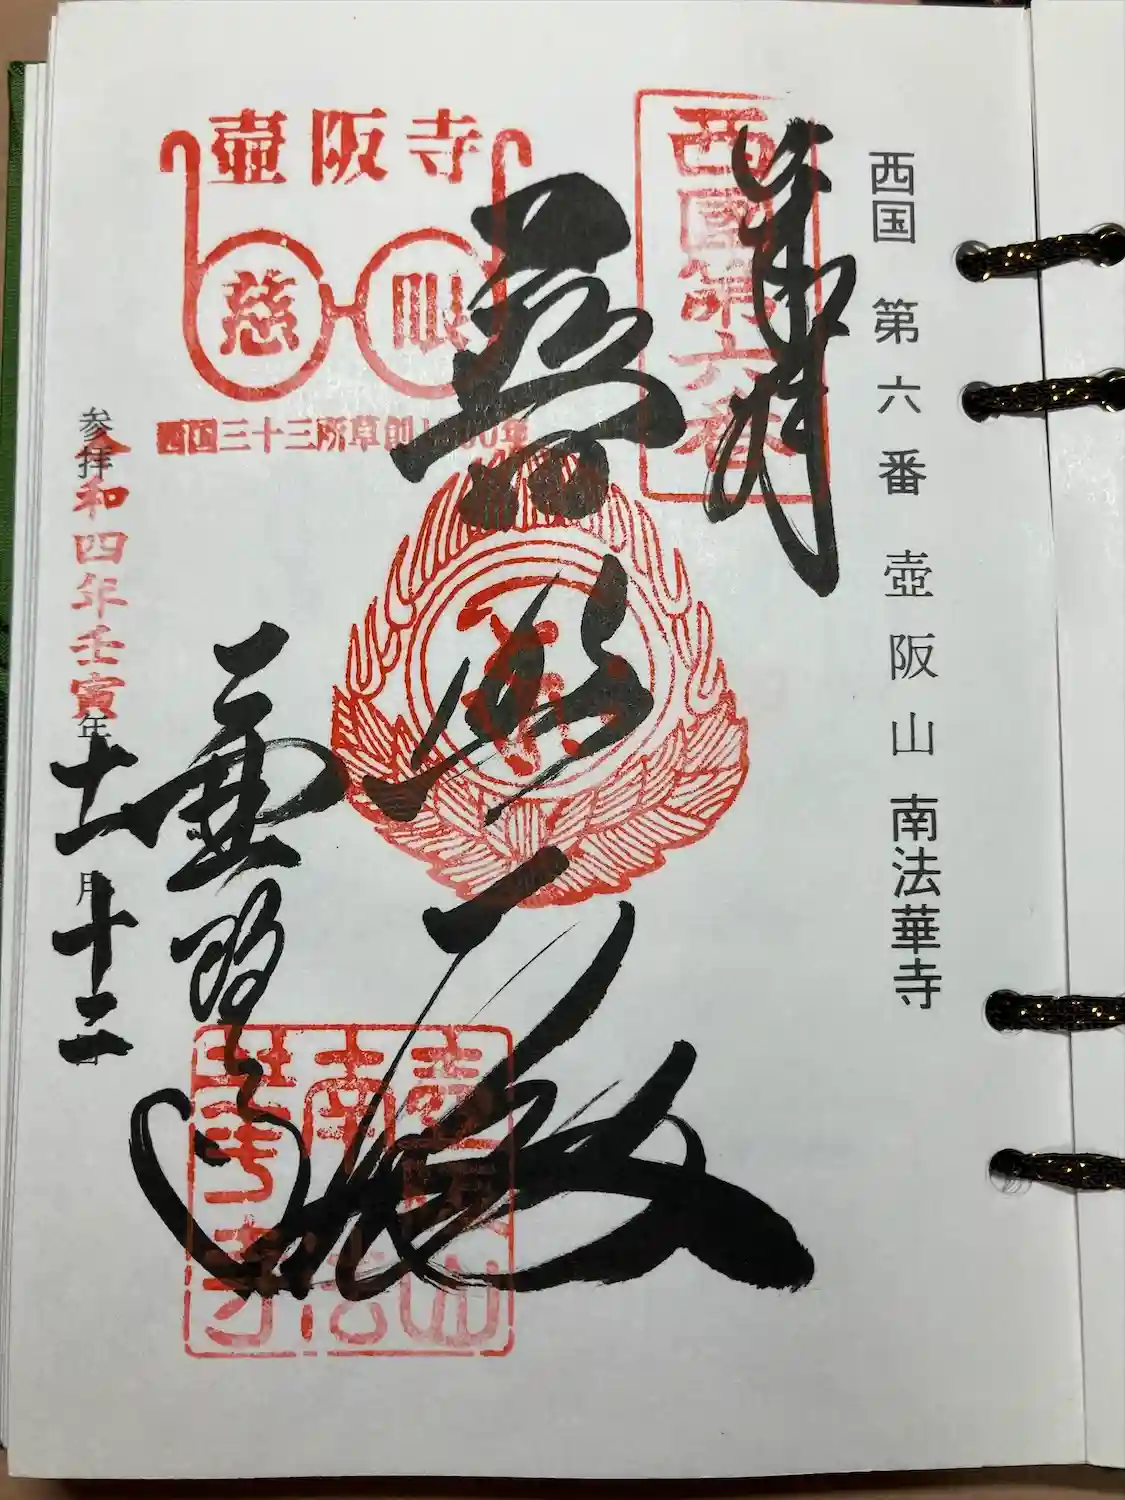 西国 第六番 壺阪山 南法華寺
奉拝
西國第六番
普照殿
壺阪寺
慈眼
西国三十三所草創1300年
壺阪山
南法
華寺
参拝 令和四年壬寅年 十一月 十二日